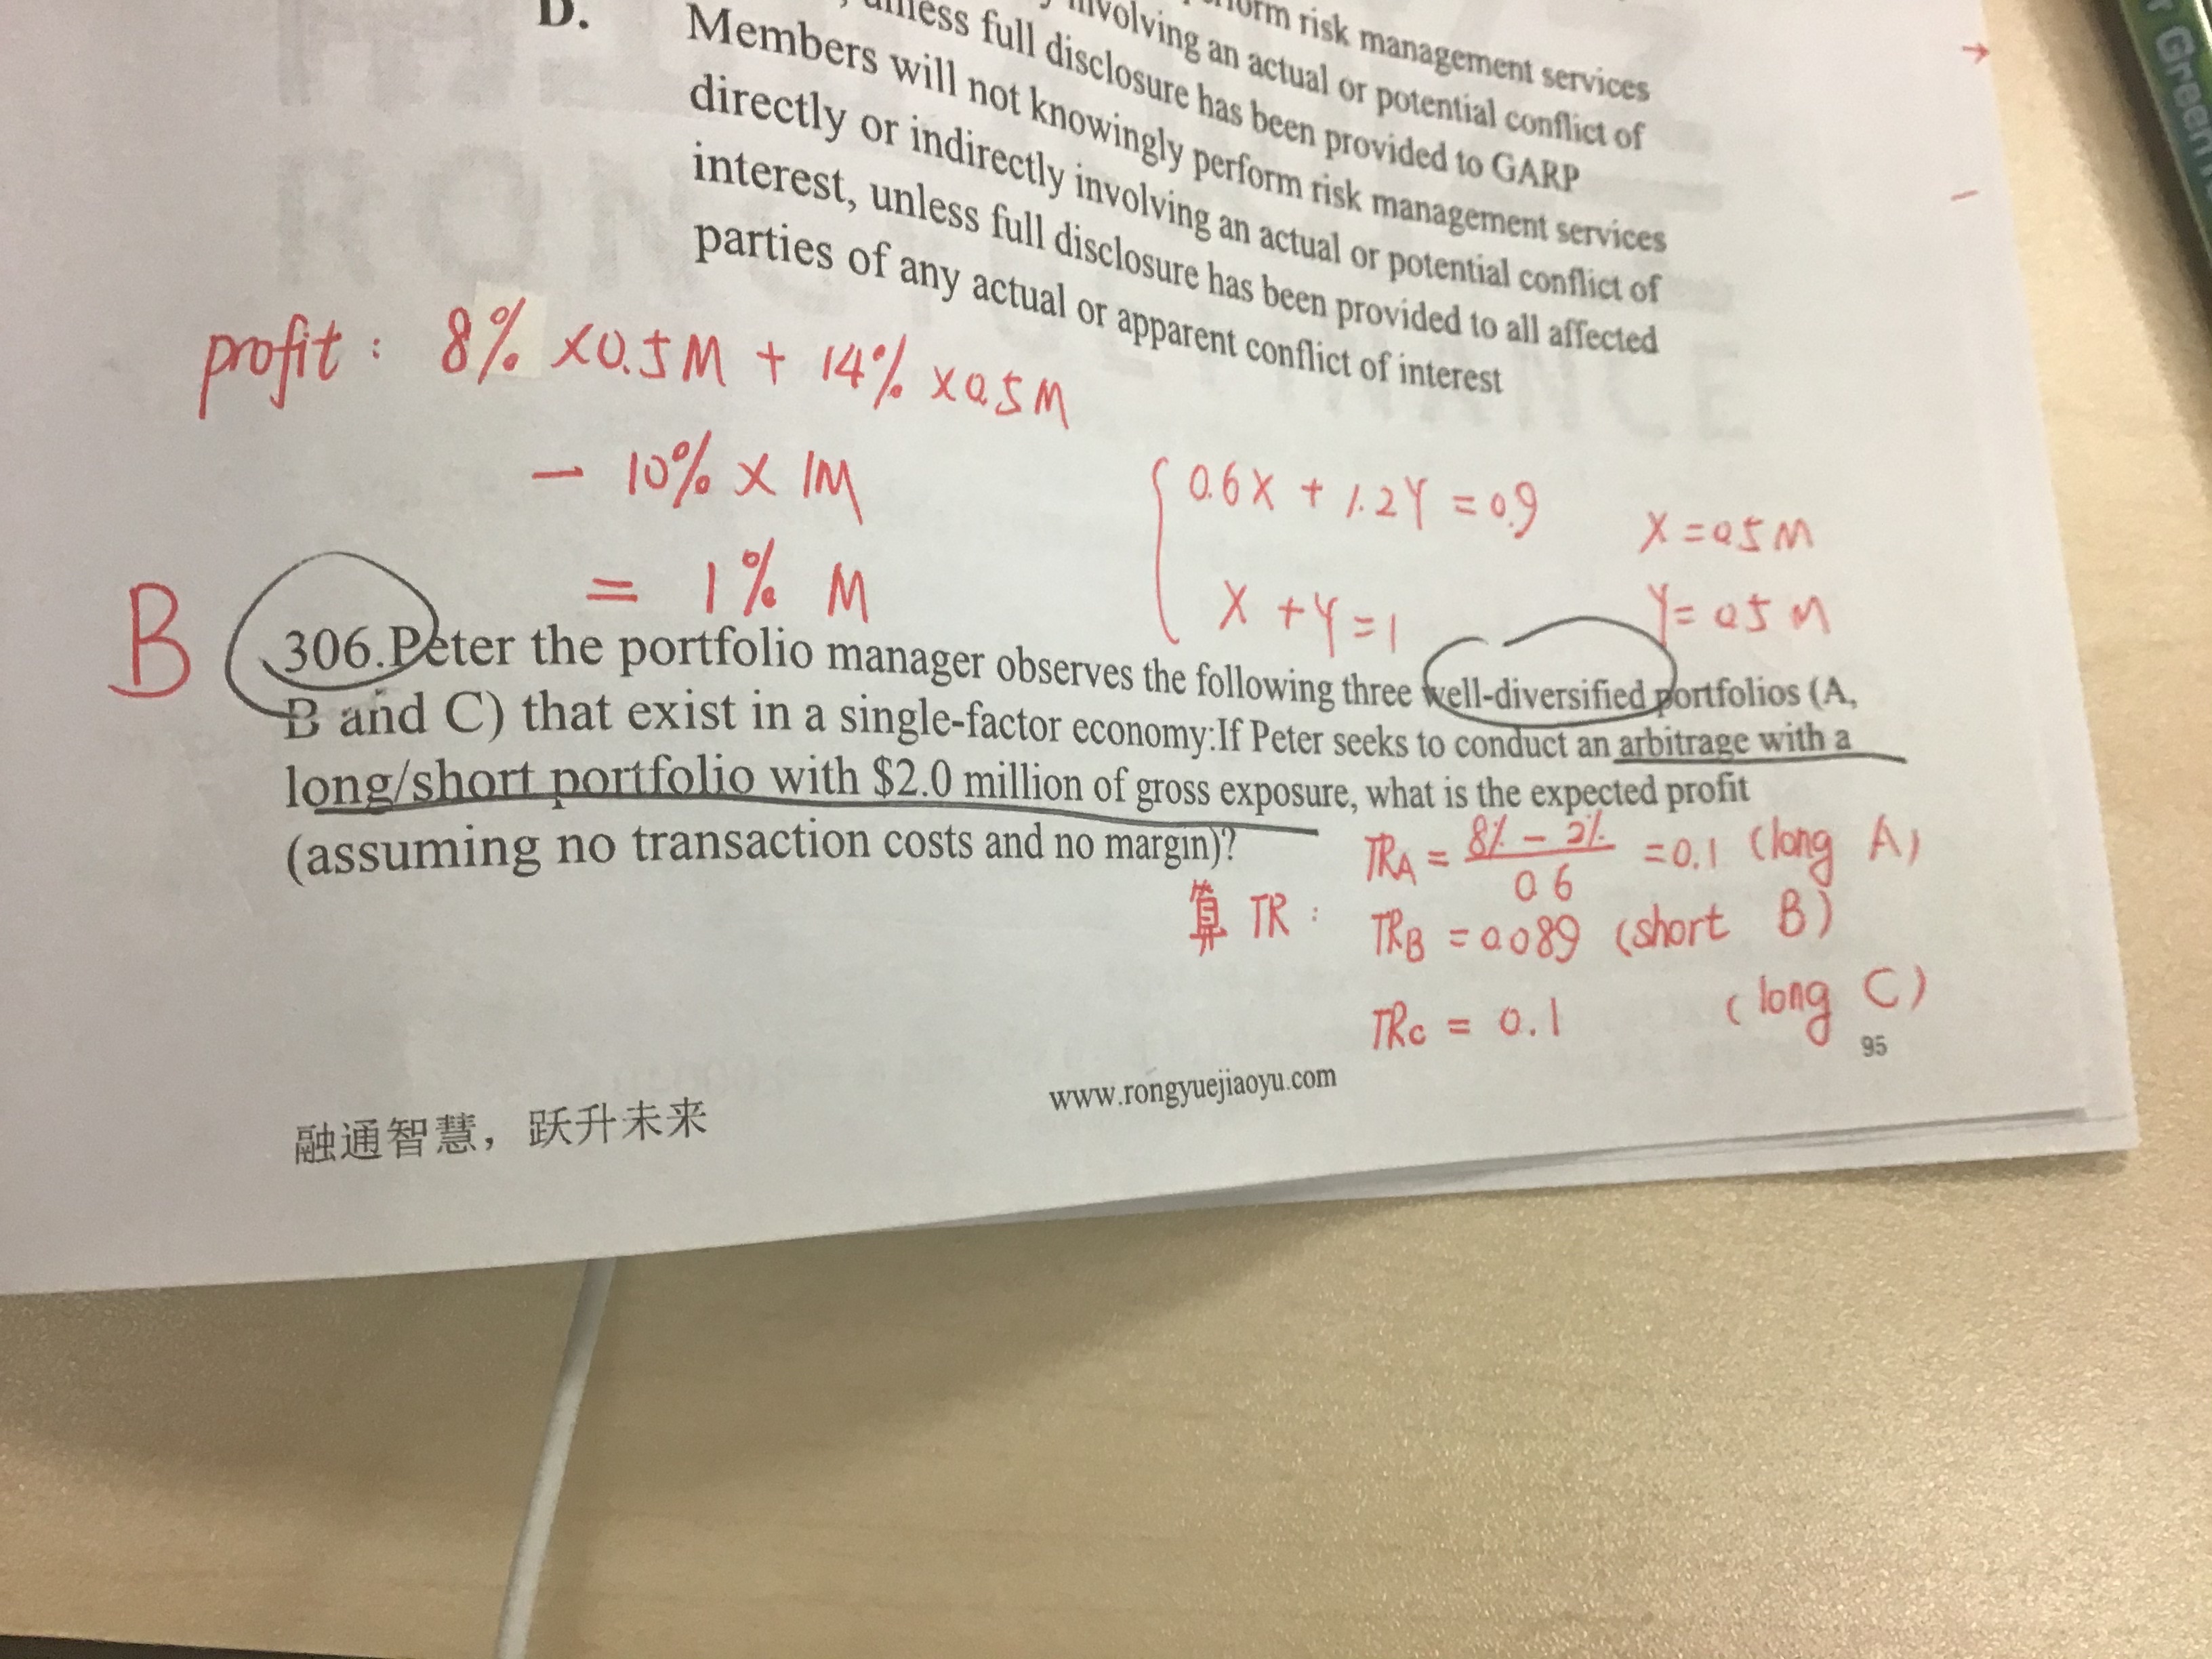 risk management services
involving an actual or potential conflict of
unless full disclosure has been provided to GARP
D. Members will not knowingly perform risk management services
directly or indirectly involving an actual or potential conflict of
interest, unless full disclosure has been provided to all affected
parties of any actual or apparent conflict of interest
profit: 8% ×0.5M + 14% ×0.5M
- 10% × 1M
= 1% M
0.6X + 1.2Y = 0.9
X + Y = 1
X = 0.5M
Y = 0.5M
B
306.Peter the portfolio manager observes the following three well-diversified portfolios (A,
B and C) that exist in a single-factor economy:If Peter seeks to conduct an arbitrage with a
long/short portfolio with $2.0 million of gross exposure, what is the expected profit
(assuming no transaction costs and no margin)?
算 TR:
TRA = 8% - 2% / 0.6 = 0.1 (long A)
TRB = 0.089 (short B)
TRC = 0.1 (long C)
95
www.rongyuejiaoyu.com
融通智慧，跃升未来
Green